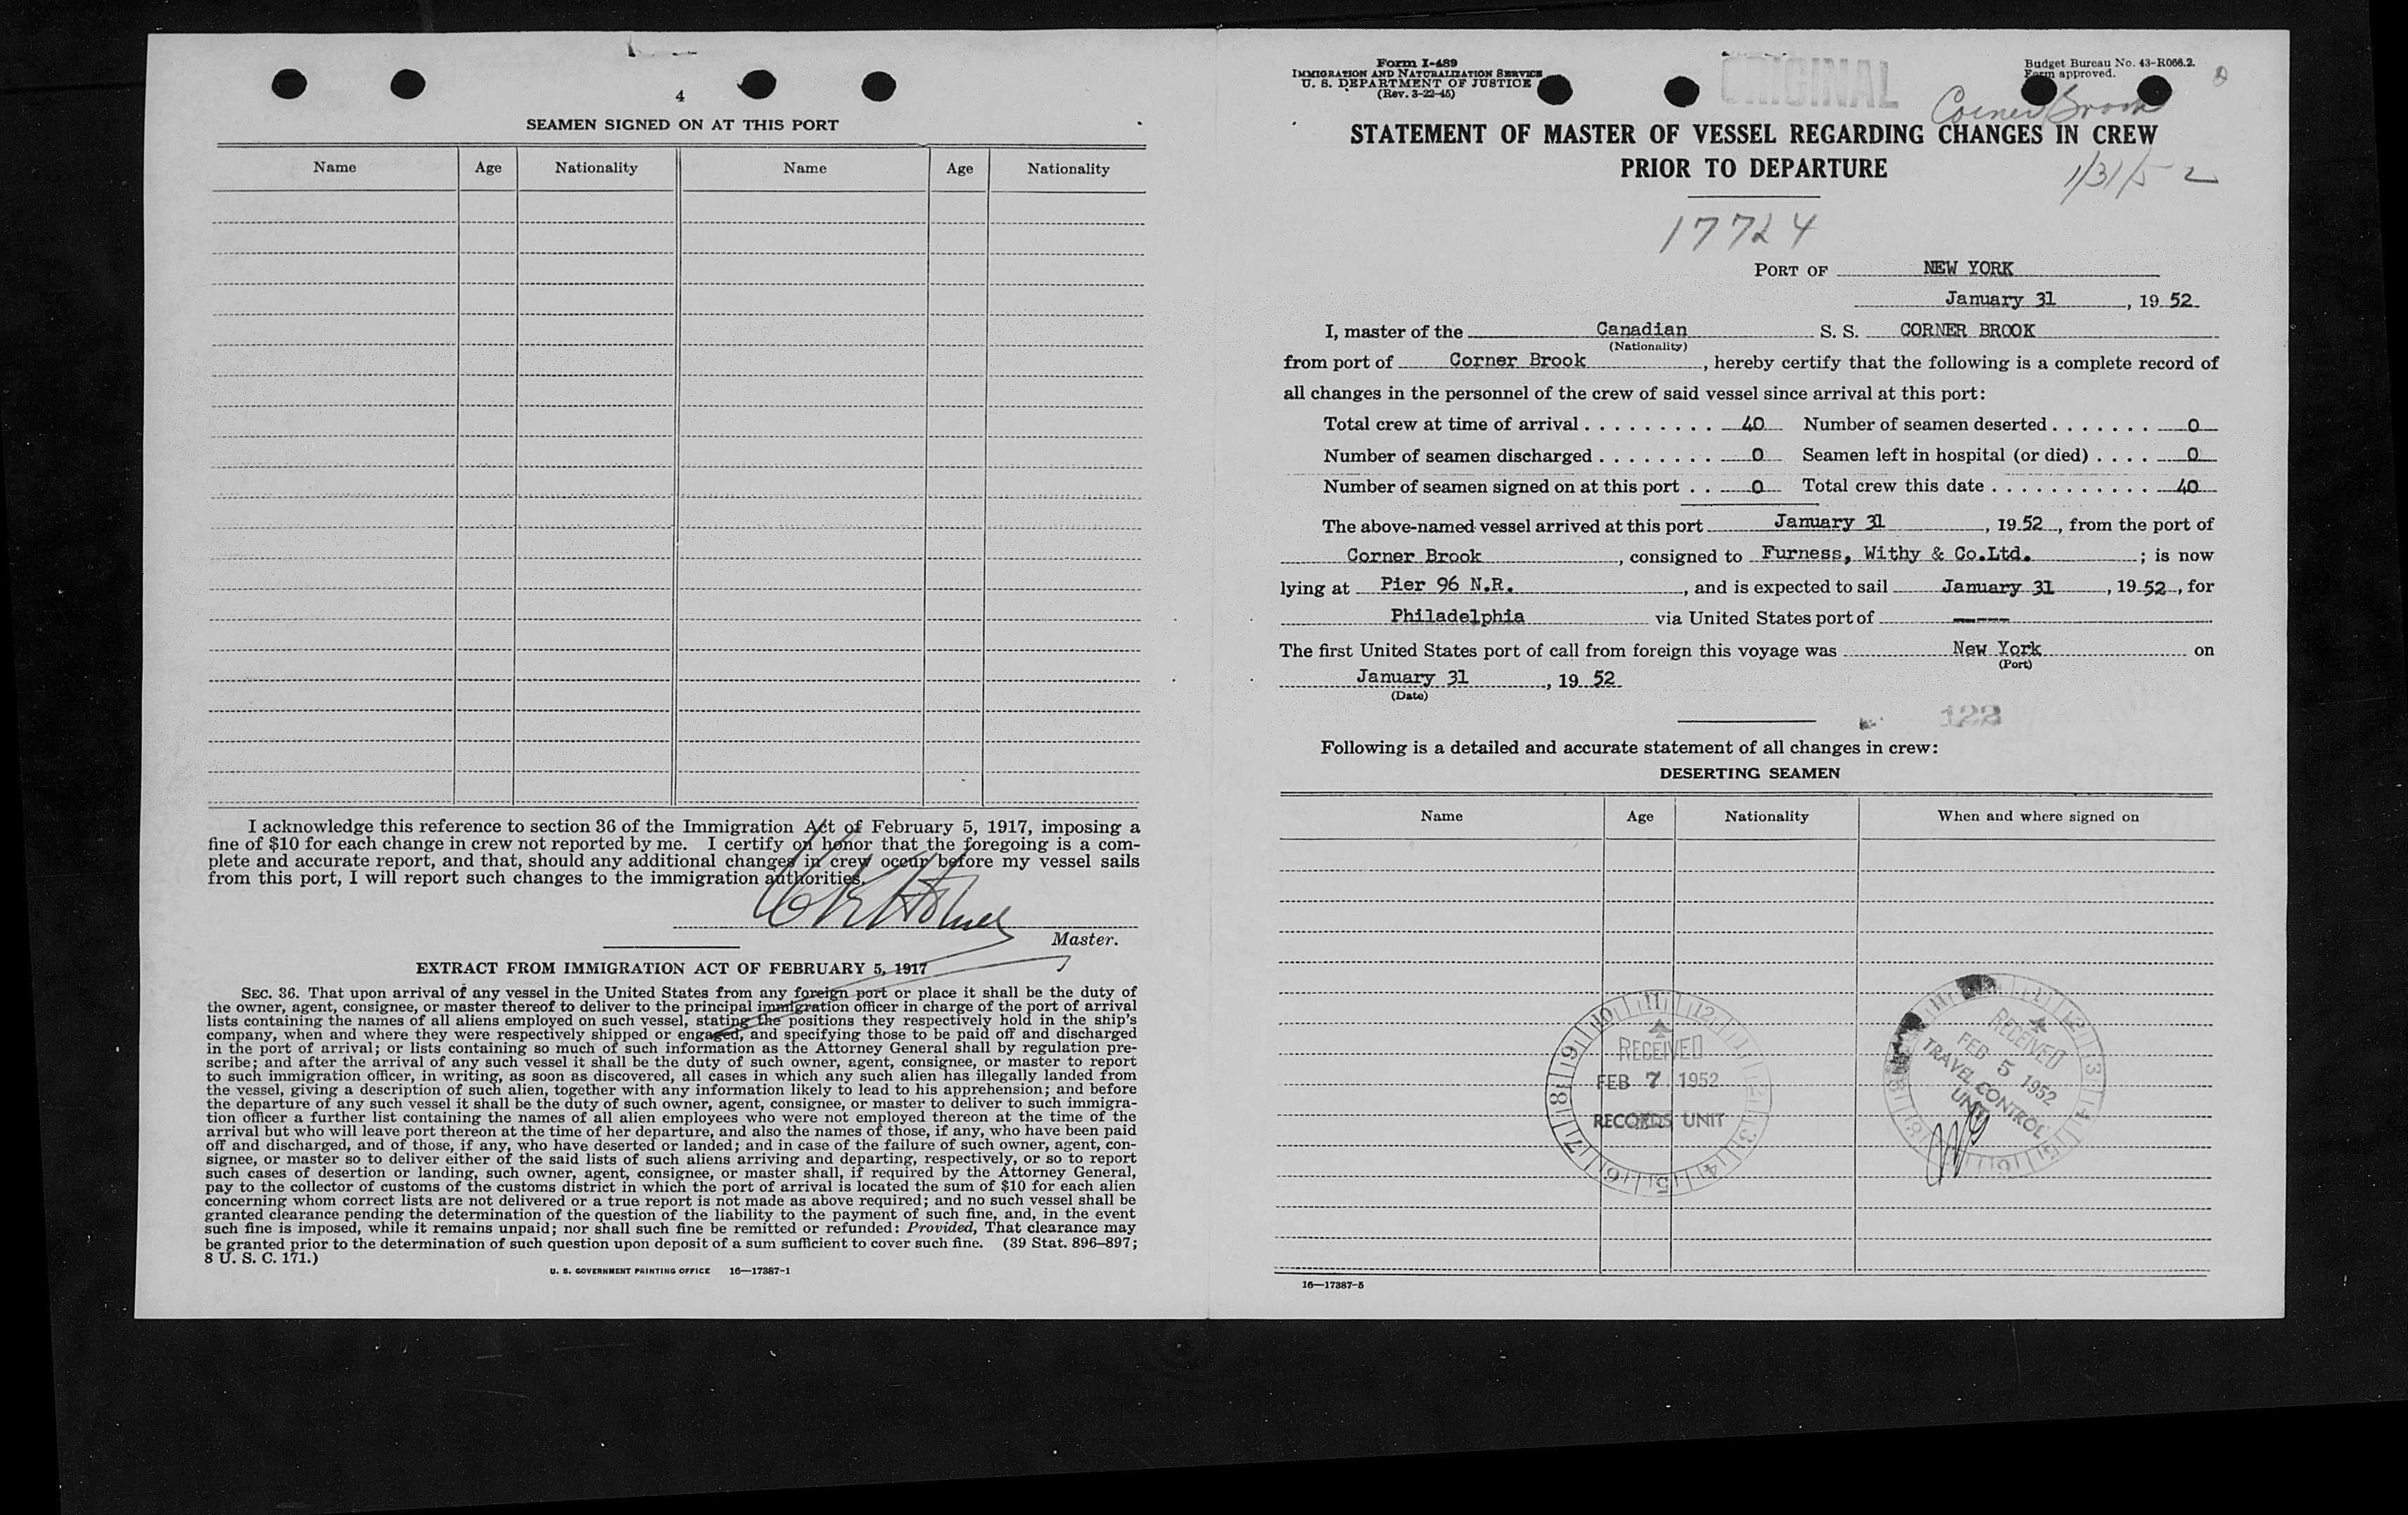 4
SEAMEN SIGNED ON AT THIS PORT
Name Age Nationality Name Age Nationality
I acknowledge this reference to section 36 of the Immigration Act of February 5, 1917, imposing a
fine of $10 for each change in crew not reported by me. I certify on honor that the foregoing is a com-
plete and accurate report, and that, should any additional changes in crew occur before my vessel sails
from this port, I will report such changes to the immigration authorities.
Master.
EXTRACT FROM IMMIGRATION ACT OF FEBRUARY 5, 1917
SEC. 36. That upon arrival of any vessel in the United States from any foreign port or place it shall be the duty of
the owner, agent, consignee, or master thereof to deliver to the principal immigration officer in charge of the port of arrival
lists containing the names of all aliens employed on such vessel, stating the positions they respectively hold in the ship's
company, when and where they were respectively shipped or engaged, and specifying those to be paid off and discharged
in the port of arrival; or lists containing so much of such information as the Attorney General shall by regulation pre-
scribe; and after the arrival of any such vessel it shall be the duty of such owner, agent, consignee, or master to report
to such immigration officer, in writing, as soon as discovered, all cases in which any such alien has illegally landed from
the vessel, giving a description of such alien, together with any information likely to lead to his apprehension; and before
the departure of any such vessel it shall be the duty of such owner, agent, consignee, or master to deliver to such immigra-
tion officer a further list containing the names of all alien employees who were not employed thereon at the time of the
arrival but who will leave port thereon at the time of her departure, and also the names of those, if any, who have been paid
off and discharged, and of those, if any, who have deserted or landed; and in case of the failure of such owner, agent, con-
signee, or master so to deliver either of the said lists of such aliens arriving and departing, respectively, or so to report
such cases of desertion or landing, such owner, agent, consignee, or master shall, if required by the Attorney General,
pay to the collector of customs of the customs district in which the port of arrival is located the sum of $10 for each alien
concerning whom correct lists are not delivered or a true report is not made as above required; and no such vessel shall be
granted clearance pending the determination of the question of the liability to the payment of such fine, and, in the event
such fine is imposed, while it remains unpaid; nor shall such fine be remitted or refunded: Provided, That clearance may
be granted prior to the determination of such question upon deposit of a sum sufficient to cover such fine. (39 Stat. 896–897;
8 U. S. C. 171.)
U. S. GOVERNMENT PRINTING OFFICE 16—17387-1
Form I-489
IMMIGRATION AND NATURALIZATION SERVICE
U. S. DEPARTMENT OF JUSTICE
(Rev. 3-22-45)
ORIGINAL
Budget Bureau No. 43-R066.2.
Form approved.
Corner Brook
STATEMENT OF MASTER OF VESSEL REGARDING CHANGES IN CREW
PRIOR TO DEPARTURE
1/31/52
17724
PORT OF NEW YORK
January 31, 1952
I, master of the Canadian S. S. CORNER BROOK
(Nationality)
from port of Corner Brook, hereby certify that the following is a complete record of
all changes in the personnel of the crew of said vessel since arrival at this port:
Total crew at time of arrival . . . . . . . . . 40 Number of seamen deserted . . . . . . . 0
Number of seamen discharged . . . . . . . . 0 Seamen left in hospital (or died) . . . . 0
Number of seamen signed on at this port . . 0 Total crew this date . . . . . . . . . . . 40
The above-named vessel arrived at this port January 31, 1952, from the port of
Corner Brook, consigned to Furness, Withy & Co.Ltd.; is now
lying at Pier 96 N.R., and is expected to sail January 31, 1952, for
Philadelphia via United States port of -----
The first United States port of call from foreign this voyage was New York on
(Port)
January 31, 1952
(Date)
122
Following is a detailed and accurate statement of all changes in crew:
DESERTING SEAMEN
Name Age Nationality When and where signed on
RECEIVED
FEB 7 1952
RECORDS UNIT
RECEIVED
FEB 5 1952
TRAVEL CONTROL
UNIT
16—17387-5